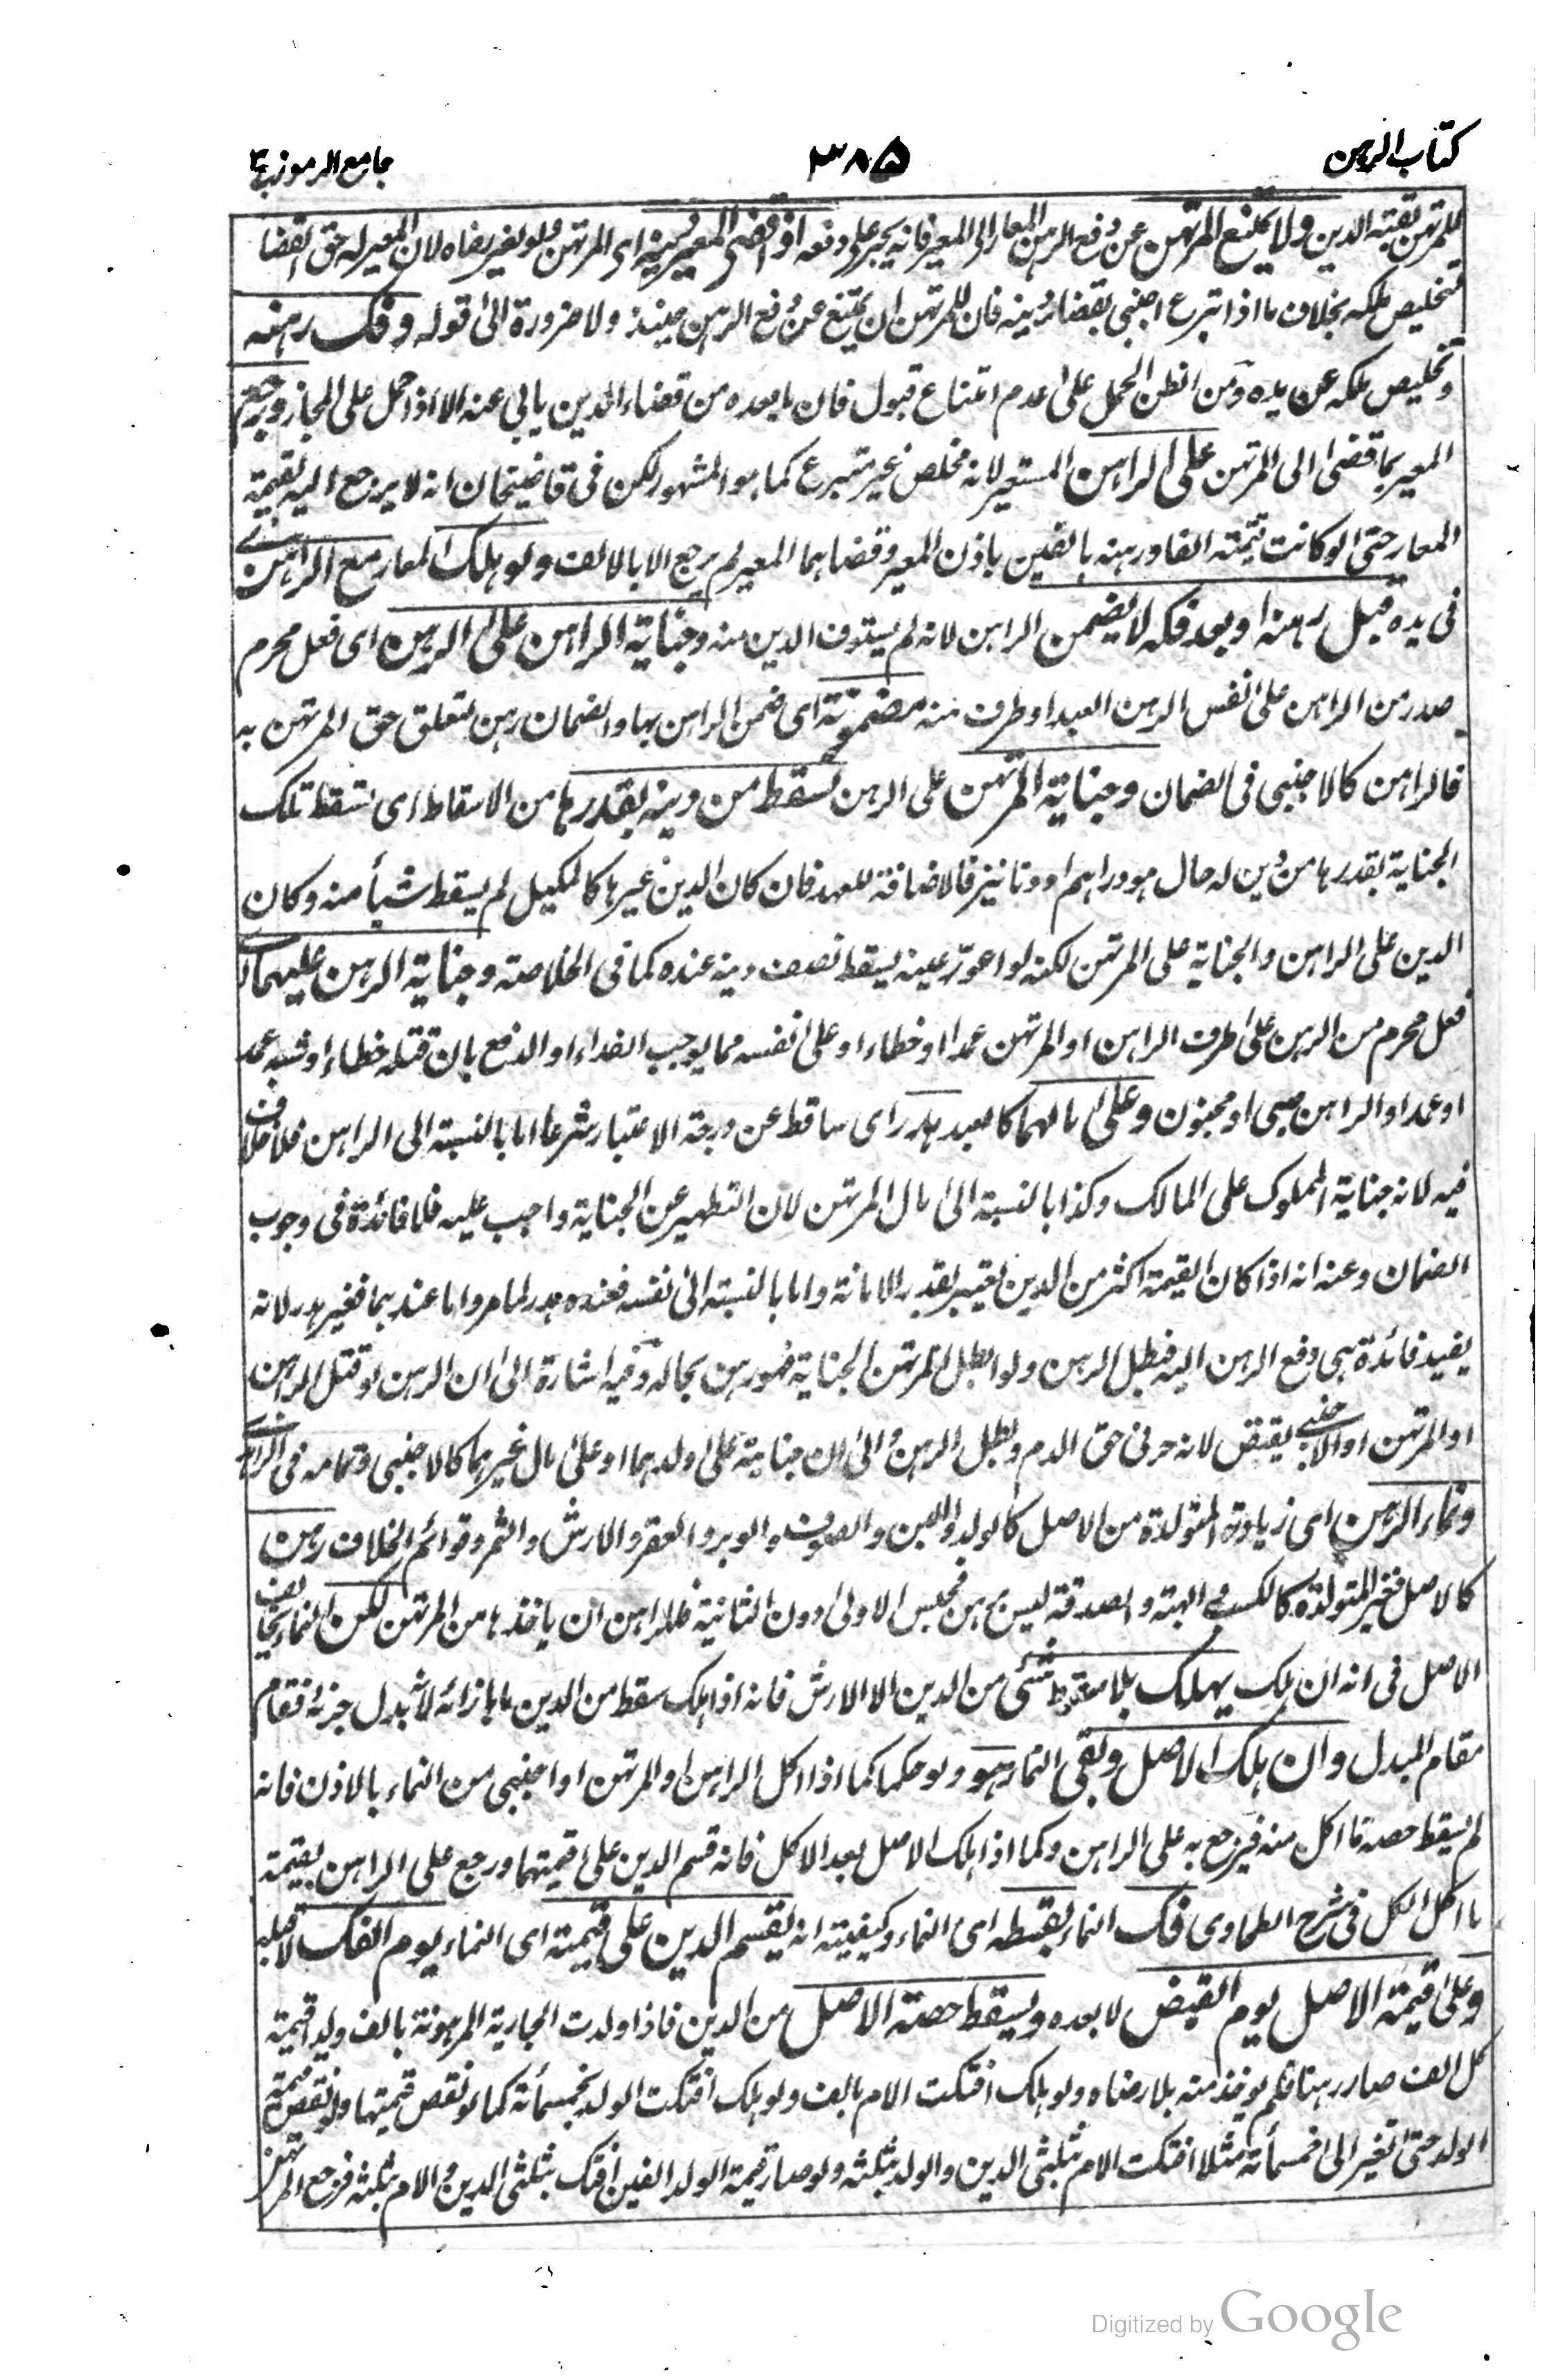 كتاب الرهن
٣٨٥
جامع الرموز ج ٣
للمرتهن بقية الدين ولا يمنع المرتهن عن دفع الرهن المعار الى المعير فانه يجبر على دفعه اذا قضى المعير دينه اى المرتهن ولو بغير رضاه لان المعير له حق القضا
لتخليص ملكه بخلاف ما اذا تبرع اجنبى بقضاء دينه فان للمرتهن ان يمتنع عن دفع الرهن حينئذ ولا ضرورة الى قوله وفك رهنه
وتخليص ملكه عن يده ومن الظن الحمل على عدم امتناع قبول فان ما بعده من قضاء الدين يابى عنه الا اذا حمل على المجاز ويرجع
المعير بما قضى الى المرتهن على الراهن المستعير لانه مخلص غير متبرع كما هو المشهور لكن فى قاضيخان انه لا يرجع اليه بقيمة
المعار حتى لو كانت قيمته الفا ورهنه بالفين باذن المعير وقضاهما المعير لم يرجع الا بالالف ولو هلك المعار مع الراهن اى
فى يده قبل رهنه او بعد فكه لا يضمن الراهن لانه لم يستوف الدين منه وجناية الراهن على الرهن اى فعل محرم
صدر من الراهن على نفس الرهن العبد او طرف منه مضمونة اى ضمن الراهن بها والضمان رهن لتعلق حق المرتهن به
فالراهن كالاجنبى فى الضمان وجناية المرتهن على الرهن تسقط من دينه بقدرها من الاسقاط اى تسقط تلك
الجناية بقدرها من دين له حال هو دراهم او دنانير فالاضافة للعهد فان كان الدين غيرها كالمكيل لم يسقط شيأ منه وكان
الدين على الراهن والجناية على المرتهن لكنه لو اعور عينه يسقط نصف دينه عنده كما فى الخلاصة وجناية الرهن عليهما اى
فعل محرم من الرهن على طرف الراهن او المرتهن عمدا او خطاء او على نفسه مما يوجب الفداء او الدفع بان قتله خطاء او شبه عمد
او عمدا والراهن صبى او مجنون وعلى مالهما كالعبد هدر اى ساقط عن درجة الاعتبار شرعا اما بالنسبة الى الراهن فلا خلاف
فيه لانه جناية المملوك على المالك وكذا بالنسبة الى مال المرتهن لان التطهير عن الجناية واجب عليه فلا فائدة فى وجوب
الضمان وعنه انه اذا كان القيمة اكثر من الدين يعتبر بقدر الامانة واما بالنسبة الى نفسه فعنده هدر لما مر واما عندهما فغير هدر لانه
يفيد فائدة هى دفع الرهن اليه فبطل الرهن ولو ابطل المرتهن الجناية فهو رهن بحاله وفيه اشارة الى ان الرهن لو قتل الراهن
او المرتهن او الاجنبى يقتص لانه حر فى حق الدم وبطل الرهن والى ان جنايته على ولدهما او على مال غيرهما كالاجنبى وتمامه فى
ونماء الرهن اى زيادته المتولدة من الاصل كالولد واللبن والصوف والوبر والعقر والارش والثمر وقوائم الخلاف رهن
كالاصل فغير المتولدة كالكسب والهبة والصدقة ليس برهن فحبس الاولى دون الثانية فللراهن ان ياخذها من المرتهن لكن النماء يخالف
الاصل فى انه ان هلك يهلك بلا سقوط شئ من الدين الا الارش فانه اذا هلك سقط من الدين ما بازائه لانه بدل جزئه فقام
مقام المبدل وان هلك الاصل وبقى النماء هو ولو حكما كما اذا اكل الراهن او المرتهن او اجنبى من النماء بالاذن فانه
لم يسقط حصة ما اكل منه فيرجع به على الراهن وكما اذا هلك الاصل بعد الاكل فانه قسم الدين على قيمتهما ورجع على الراهن بقيمة
ما اكل الكل فى شرح الطحاوى فك النماء بقسطه اى النماء وكيفيته انه يقسم الدين على قيمته اى النماء يوم الفك لا قبله
وعلى قيمة الاصل يوم القبض لا بعده ويسقط حصة الاصل من الدين فاذا ولدت الجارية المرهونة بالف ولدا قيمة
كل الف صار رهنا فلم يؤخذ منه بلا رضاه ولو هلك افتكت الام بالف ولو هلكت افتك الولد بخمسمأة كما لو نقص قيمتها ولو نقص قيمة
الولد حتى تغير الى خمسمأة مثلا افتكت الام بثلثى الدين والولد بثلثه ولو صار قيمة الولد الفين افتك بثلثى الدين والام بثلثه فرجع المرتهن
Digitized by Google